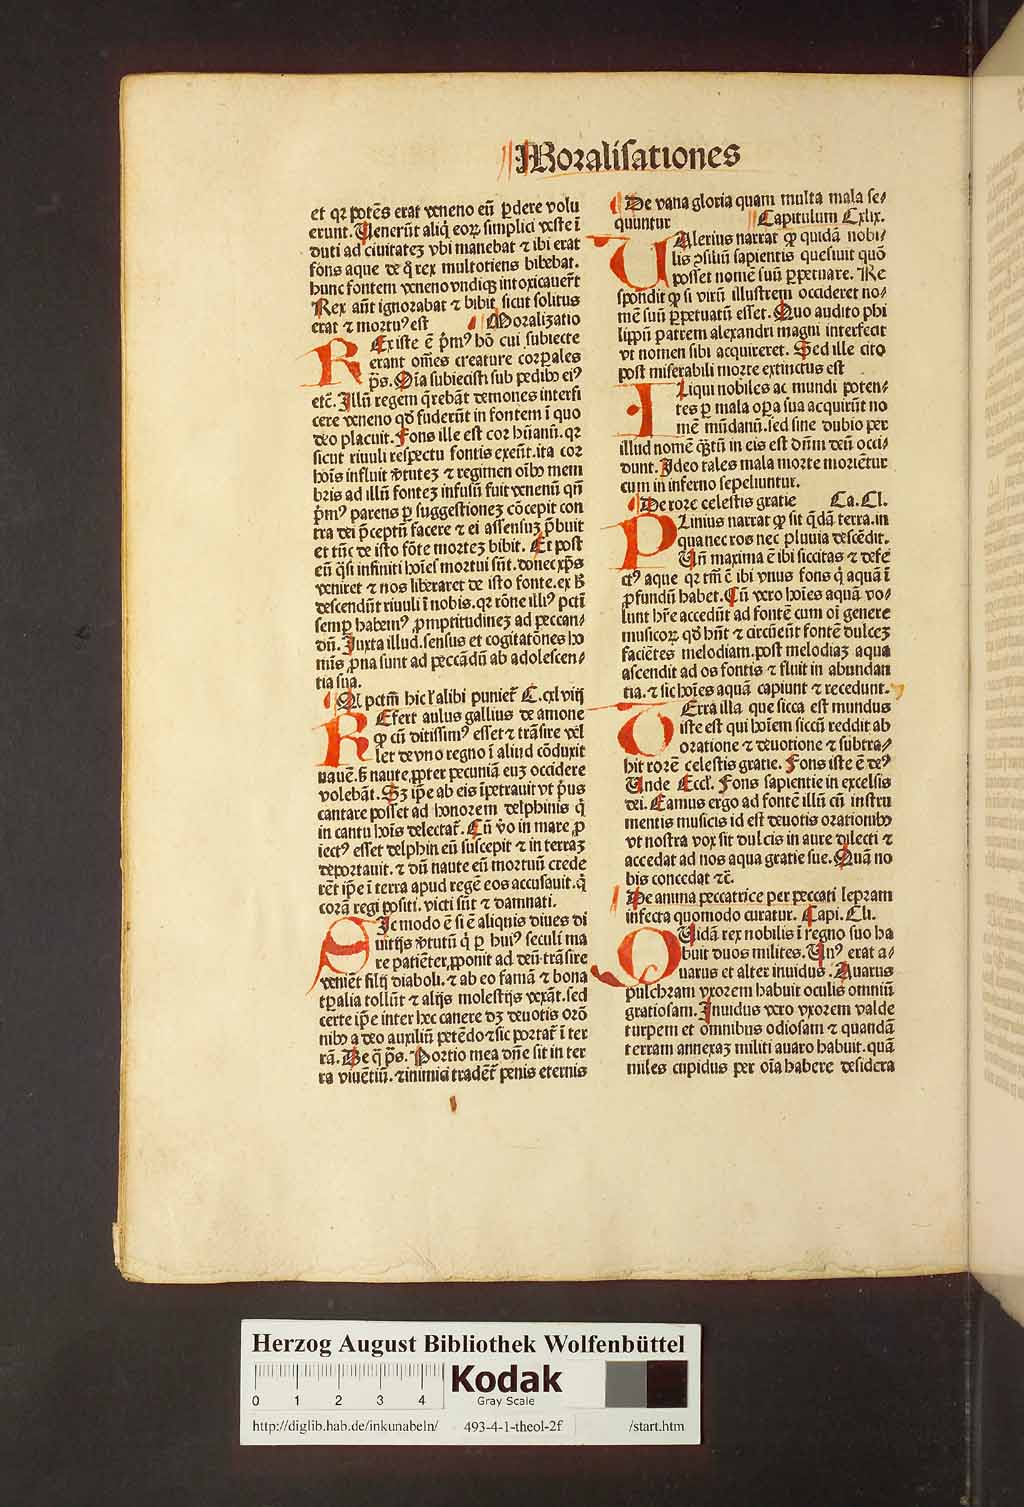 Moralisationes
et qꝛ potēs erat veneno eū ꝑdere volu
erunt. Uenerūt aliq̇ eoꝝ simplici veste ī
duti ad ciuitateʒ vbi manebat ⁊ ibi erat
fons aque de q̇ rex multotiens bibebat.
hunc fontem veneno vndiqʒ intoxicauer̄t
Rex aūt ignorabat ⁊ bibit sicut solitus
erat ⁊ mortuꝰ est Moralizatio
REx iste ē p̄mꝰ hō cui subiecte
erant oēs creature corꝑales
p̄s. Oīa subiecisti sub pedibꝰ eiꝰ
etc̄. Illū regem q̄rebāt demones interfi
cere veneno qd̄ fuderūt in fontem ī quo
deo placuit. Fons ille est cor hūanū. qꝛ
sicut riuuli respectu fontis exeūt. ita cor
hoīs influit v̄tuteʒ ⁊ regimen oībꝰ mem
bris ad illū fonteʒ infusū fuit venenū qn̄
p̄mꝰ parens ꝑ suggestioneʒ cōcepit con
tra dei p̄ceptū facere ⁊ ei assensuʒ p̄buit
et tūc de isto fōte morteʒ bibit. Et post
eū q̄si infiniti hoīes mortui sūt. donec xp̄s
veniret ⁊ nos liberaret de isto fonte. ex ꝯ
descendūt riuuli ī nobis. qꝛ rōne illiꝰ pctī
semꝑ habemꝰ ꝓmptitudineʒ ad peccan⸗
dū. Iuxta illud. sensus et cogitatōnes ho
mīs ꝓna sunt ad peccādū ab adolescen⸗
tia sua.
Al pctm̄ hic ł alibi puniet̄ C. cxlviij
REfert aulus gallius de amone
ꝙ cū ditissimꝰ esset ⁊ trāsire vel
let de vno regno ī aliud cōduxit
nauē. s̄ naute ꝓpter pecuniā euʒ occidere
volebāt. Sʒ ip̄e ab eis īpetrauit vt p̄us
cantare posset ad honorem delphinis q̇
in cantu hoīs delectat̄. Cū v̇o in mare ꝓ
iectꝰ esset delphin eū suscepit ⁊ in terraʒ
deportauit. ⁊ dū naute eū mortuū crede
rēt ip̄e ī terra apud regē eos accusauit. q̇
corā regi positi. victi sūt ⁊ damnati.
SIc modo ē si ē aliquis diues di
uitijs v̄tutū q̇ ꝑ huiꝰ seculi ma
re patiēter ꝓponit ad deū trāsire
veniēt filij diaboli. ⁊ ab eo famā ⁊ bona
tꝑalia tollūt ⁊ alijs molestijs vexāt. sed
certe ip̄e inter hec canere dʒ deuotis orō
nibꝰ a deo auxiliū petēdo ⁊ sic portat̄ ī ter
rā. De q̇ p̄s. Portio mea dn̄e sit in ter
ra viuētiū. ⁊ inimici tradēt̄ penis eternis
De vana gloria quam multa mala se⸗
quuntur Capitulum Cxlix.
UAlerius narrat ꝙ quidā nobi⸗
lis ꝯsiliū sapientis quesiuit quō
posset nomē suū ꝑpetuare. Re
spondit ꝙ si virū illustrem occideret no⸗
mē suū ꝑpetuatū esset. Quo audito phi
lippū patrem alexandri magni interfecit
vt nomen sibi acquireret. Sed ille cito
post miserabili morte extinctus est
ILiqui nobiles ac mundi poten⸗
tes ꝑ mala oꝑa sua acquirūt no
mē mūdanū. sed sine dubio per
illud nomē q̄stū in eis est dn̄m deū occi⸗
dunt. Ideo tales mala morte moriētur
cum in inferno sepeliuntur.
De rore celestis gratie Ca. Cl.
PLinius narrat ꝙ sit q̄dā terra. in
qua nec ros nec pluuia descēdit.
Uñ maxima ē ibi siccitas ⁊ defe
ctꝰ aque qꝛ tm̄ ē ibi vnus fons q̇ aquā ī
ꝓfundū habet. Cū vero hoīes aquā vo⸗
lunt hr̄e accedūt ad fontē cum oī genere
musicoꝝ qd̄ hn̄t ⁊ circūeūt fontē dulceʒ
faciētes melodiam. post melodiaʒ aqua
ascendit ad os fontis ⁊ fluit in abundan
tia. ⁊ sic hoīes aquā capiunt ⁊ recedunt.
TErra illa que sicca est mundus
iste est qui hoīem siccū reddit ab
oratione ⁊ deuotione ⁊ subtra⸗
hit rorē celestis gratie. Fons iste ē deꝰ
Unde Eccł. Fons sapientie in excelsis
dei. Eamus ergo ad fontē illū cū instru
mentis musicis id est deuotis orationibꝰ
vt nostra vox sit dulcis in aure dilecti ⁊
accedat ad nos aqua gratie sue. Quā no
bis concedat ⁊c̄.
De anima peccatrice per peccati lepram
infecta quomodo curatur. Capi. Cli.
QUidā rex nobilis ī regno suo ha
buit duos milites. Unꝰ erat a⸗
uarus et alter inuidus. Auarus
pulchram vxorem habuit oculis omniū
gratiosam. Inuidus vero vxorem valde
turpem et omnibus odiosam ⁊ quandā
terram annexaʒ militi auaro habuit. quā
miles cupidus per oīa habere desidera
Herzog August Bibliothek Wolfenbüttel
0 1 2 3 4
Kodak
Gray Scale
http://diglib.hab.de/inkunabeln/ 493-4-1-theol-2f /start.htm